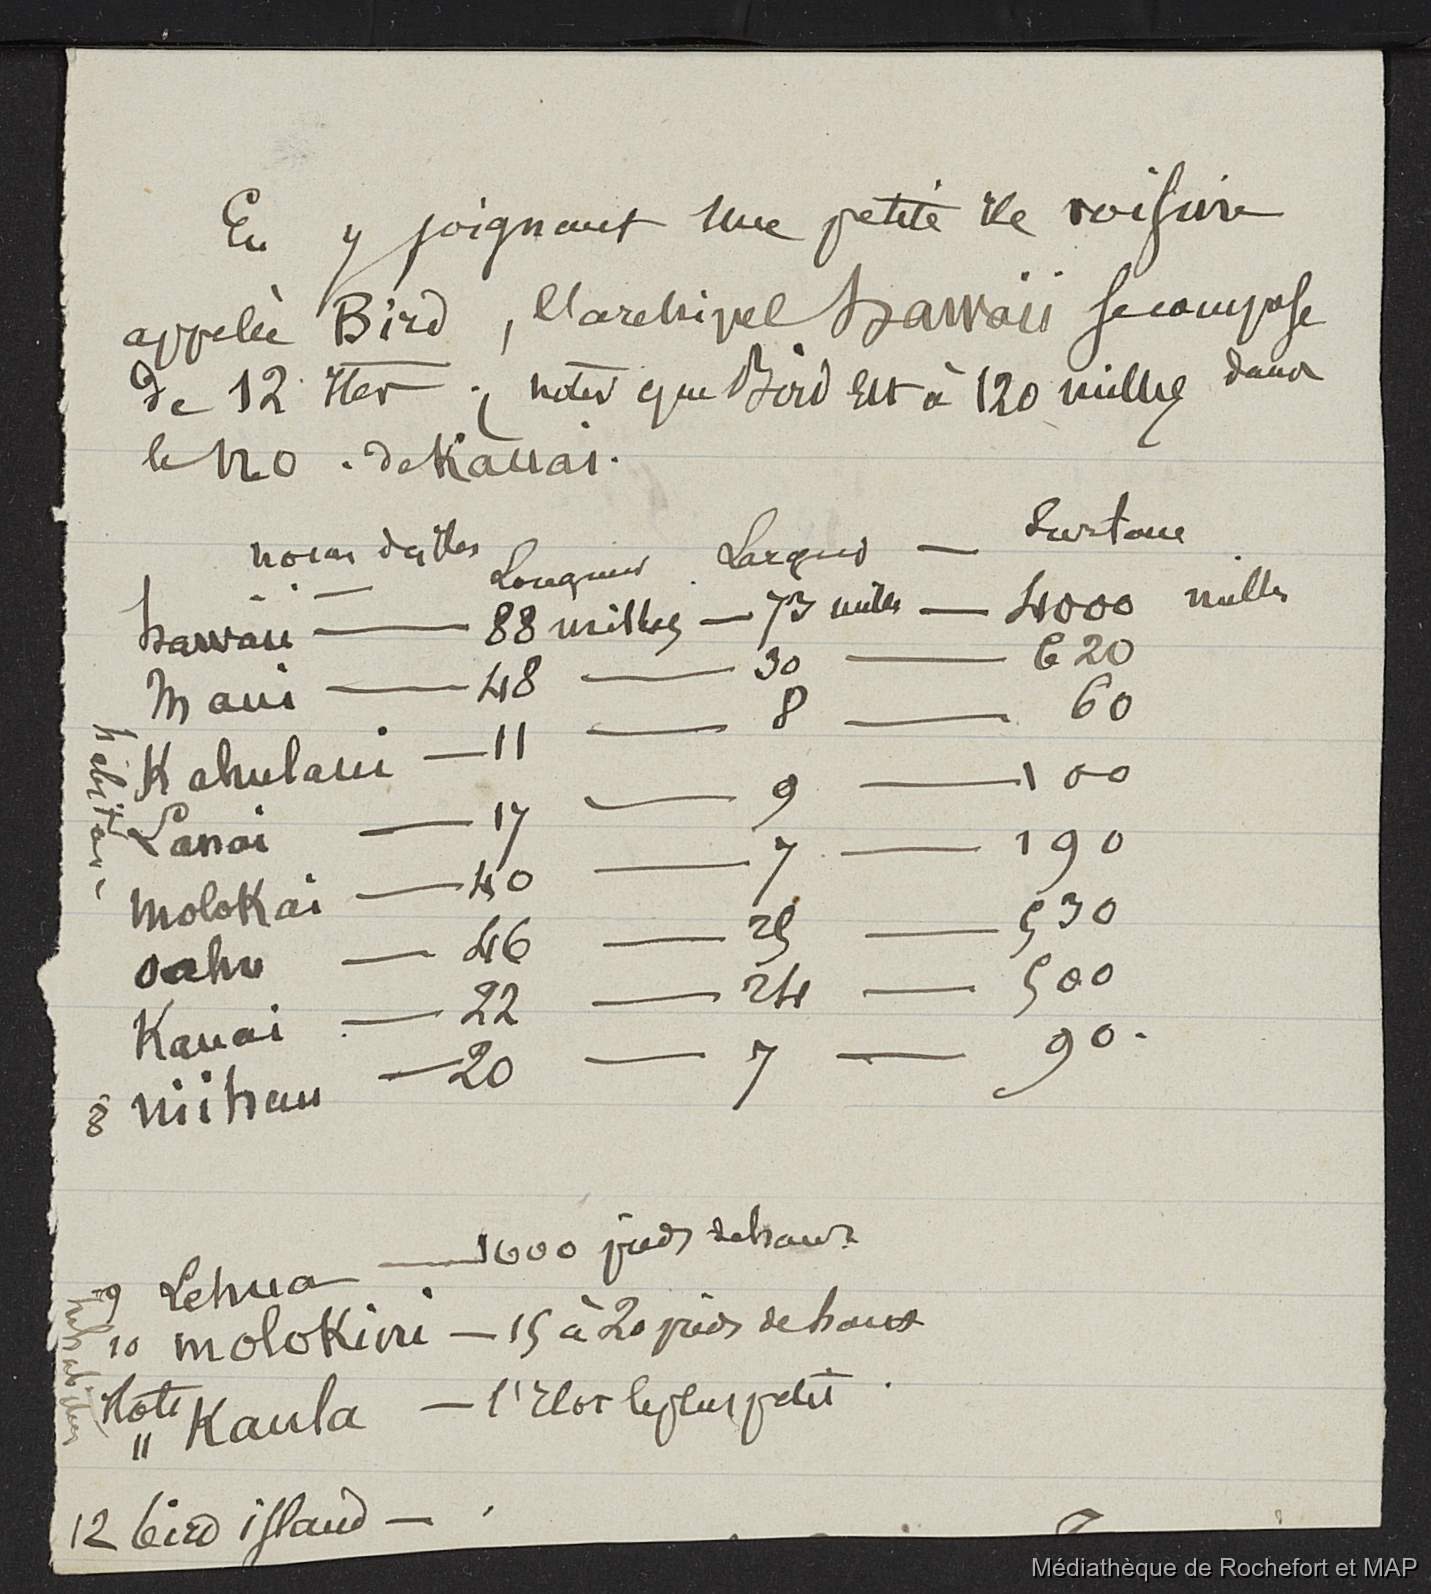 En y joignant une petite île voisine
appelée Bird, l'archipel hawaii se compose
de 12 îles; noter que Bird est à 120 milles dans
le NO. de Kauai.
noms des îles Longueur Largeur — Surface
hawaii — 88 milles — 73 milles — 4000 milles
Maui — 48 — 30 — 620
Kahulaui — 11 — 8 — 60
Lanai — 17 — 9 — 100
Molokai — 40 — 7 — 190
oahu — 46 — 25 — 530
Kauai — 22 — 24 — 500
8 niihau — 20 — 7 — 90.
9 Lehua — 1000 pieds de haut
10 molokini — 15 à 20 pieds de haut
11 Kaula — l'îlot le plus petit.
12 bird island —
Médiathèque de Rochefort et MAP